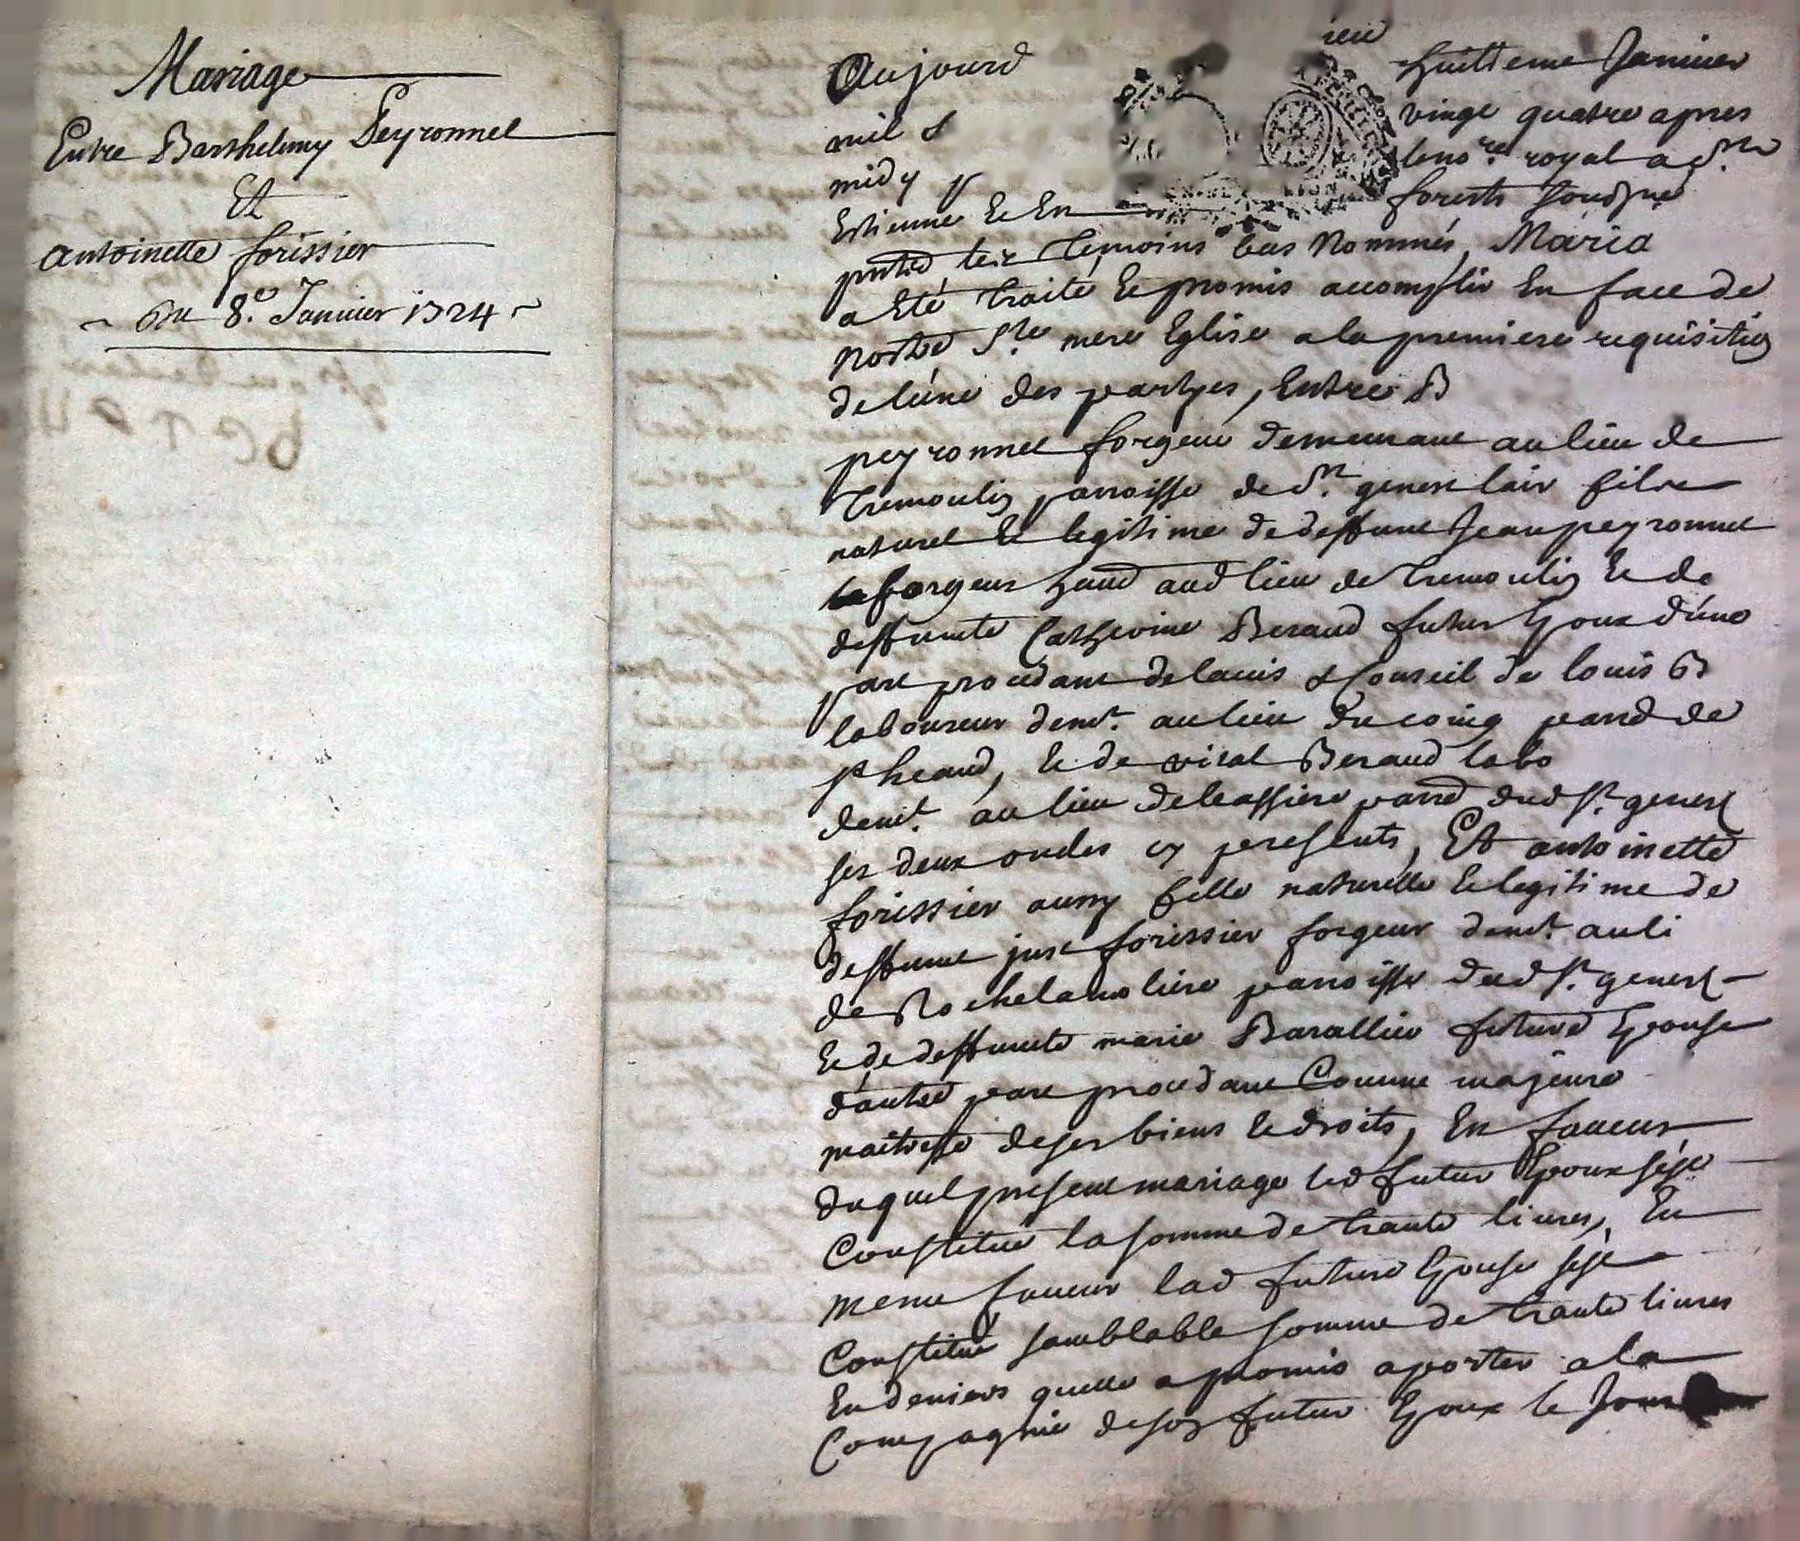 Mariage
Entre Barthelemy Peyronnel
Et
Antoinette forissier
Du 8.e Januier 1724
Aujourd huitieme Januier
mil & vingt quatre apres
midy p leno.re royal a St
Estienne Et En forests soudsne
pnted les Temoins bas Nommés, Maria
a Eté traité Et promis accomplir En face de
nostre Ste mere Eglise a la premiere requisition
de lune des partyes, Entre B
peyronnel forgeur demeurant au lieu de
Tremoulin parroisse de St genest lair fils
naturel Et legitime de deffunt Jean peyronnel
forgeur aud lieu de Tremoulin Et de
deffuncte Catherine Beraud futur Epoux dune
part procedant de lauis & Conseil de louis B
laboureur demt. au lieu du coing parrd de
st heand, Et de vital Beraud labo
demt. au lieu de leassiere parrd dud St. genest
ses deux oncles cy presents, Et antoinette
forissier aussy fille naturelle Et legitime de
deffunt just forissier forgeur demt. au li
de Rochelamoliere parroisse dud St. genest
Et de deffuncte marie Barallier future Epouse
dautre part procedant Comme majeure
maitresse de ses biens Et droits, En faueur
duquel present mariage led futur Epoux sest
Constitué la somme de trante liures, En
meme faueur lad future Epouse sest
Constitué samblable somme de trante liures
En deniers quelle a promis aporter a la
Compagnie de son futur Epoux le Jour